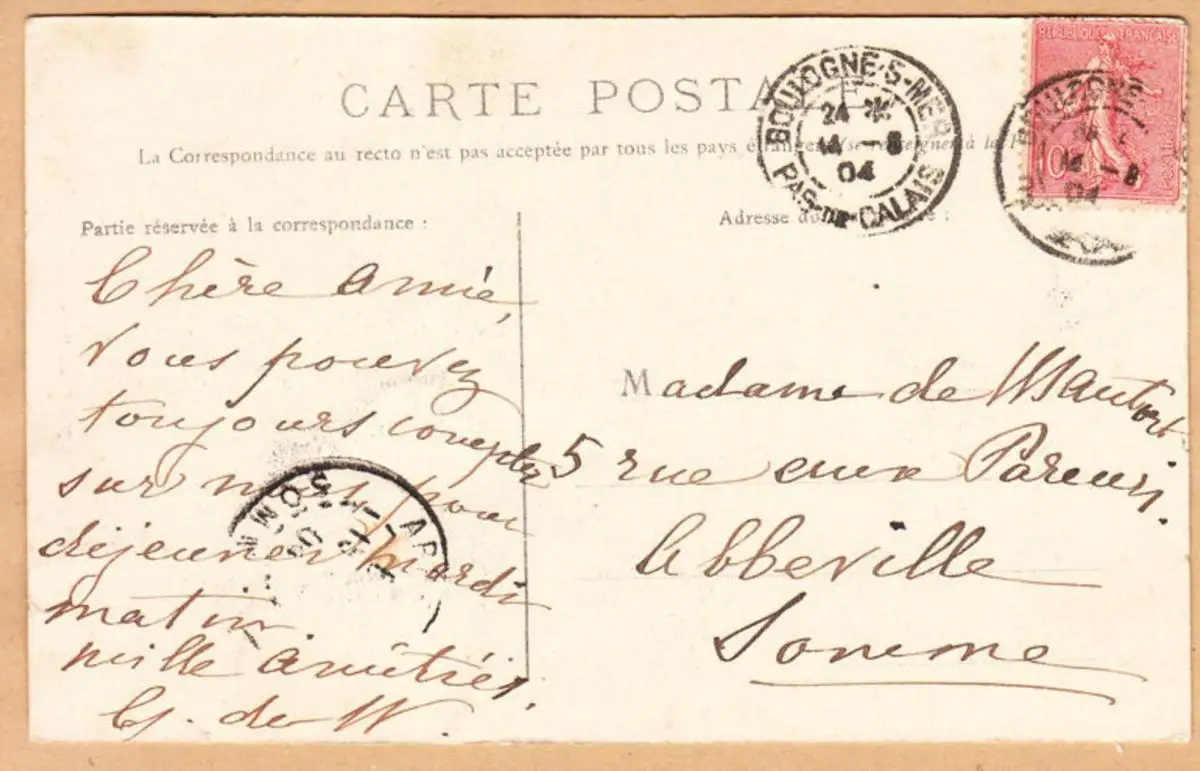 CARTE POSTALE
La Correspondance au recto n'est pas acceptée par tous les pays étrangers (se renseigner à la
Partie réservée à la correspondance :
Adresse du :
REPUBLIQUE FRANÇAISE
10
BOULOGNE-S-MER
24 *
14 - 8
04
PAS-DE-CALAIS
BOULOGNE
14 - 8
04
Chère amie,
vous pouvez
toujours compter
sur nous pour
déjeuner mardi
matin.
mille amitiés.
de W.
Madame de Wautort
5 rue aux Pareurs.
Abbeville
Somme
SOMM